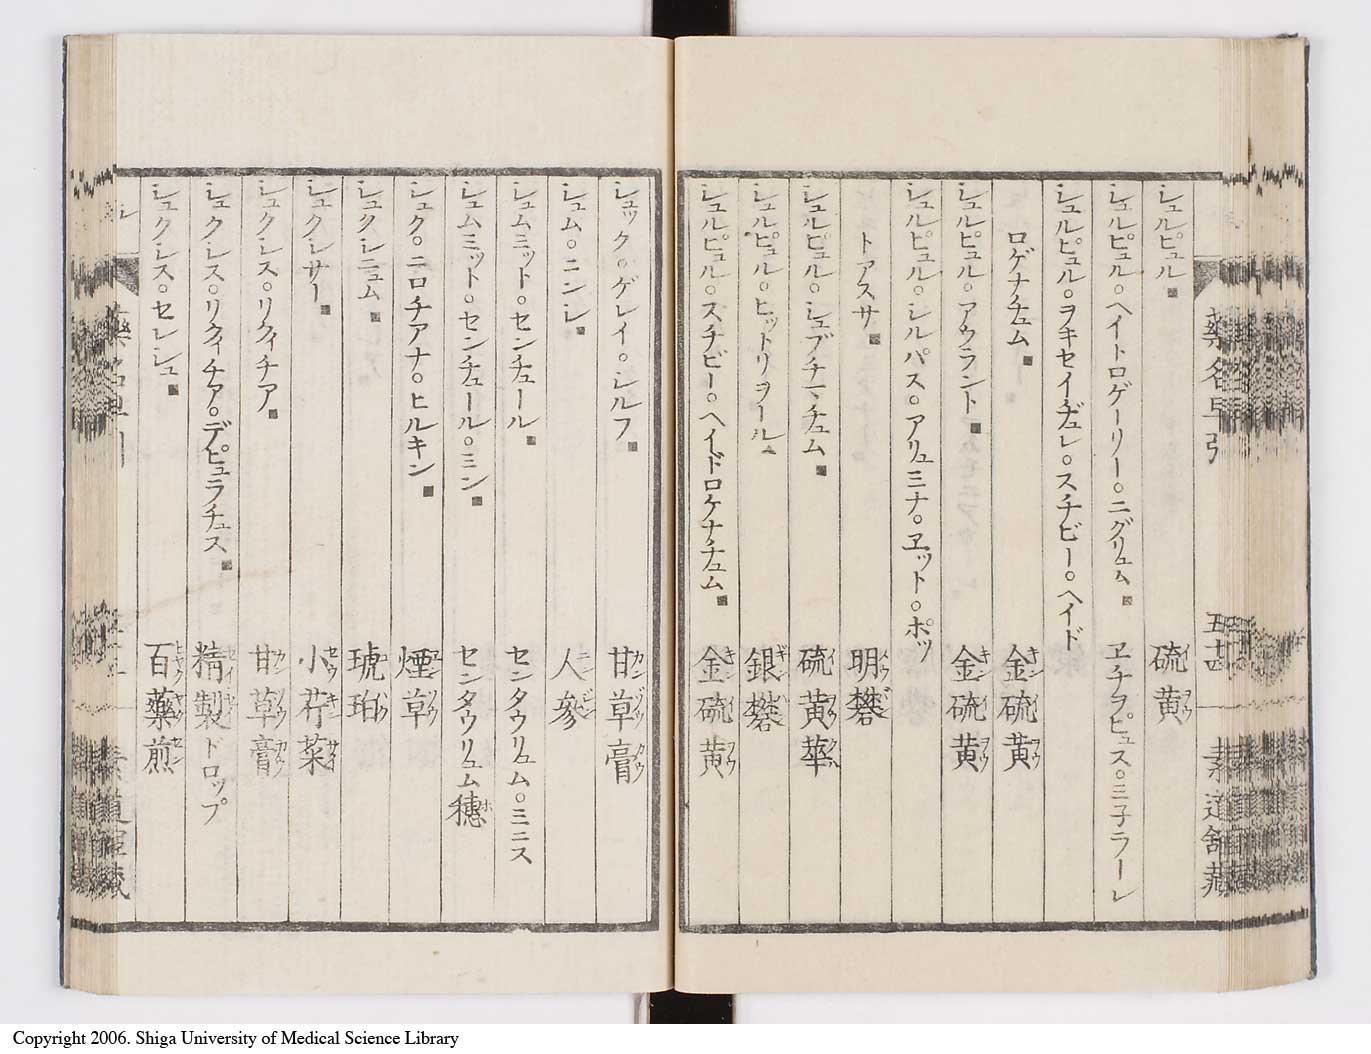 シュルピュル。 硫黄
シュルピュル。ヘイトロゲーリー。ニグリュム。 ヱチヲピュス。ミ子ラーレ
シュルピュル。ヲキセイヂュレ。スチビー。ヘイド
ロゲナチュム。 金硫黄
シュルピュル。アウラント。 金硫黄
シュルピュル。シルパス。アリュミナ。ヱット。ポッ
トアスサ。 明礬
シュルピュル。シュブチマチュム。 硫黄華
シュルピュル。ヒットリヲール。 銀礬
シュルピュル。スチビー。ヘイドロケナチュム。 金硫黄
藥名早引 五十四 素道舎藏
シュック。ゲレイ。シルフ。 甘草膏
シュム。ニンシ。 人參
シュムミット。センチュール。 センタウリュム。ミニス
シュムミット。センチュール。ミン。 センタウリュム穗
シュク。ニロチアナ。ヒルキン。 煙草
シュクシニュム。 琥珀
シュクレサー。 小荇菜
シュクレス。リクィチア。 甘草膏
シュクレス。リクィチア。デピュラチュス。 精製ドロップ
シュクレス。セレシュ。 百藥煎